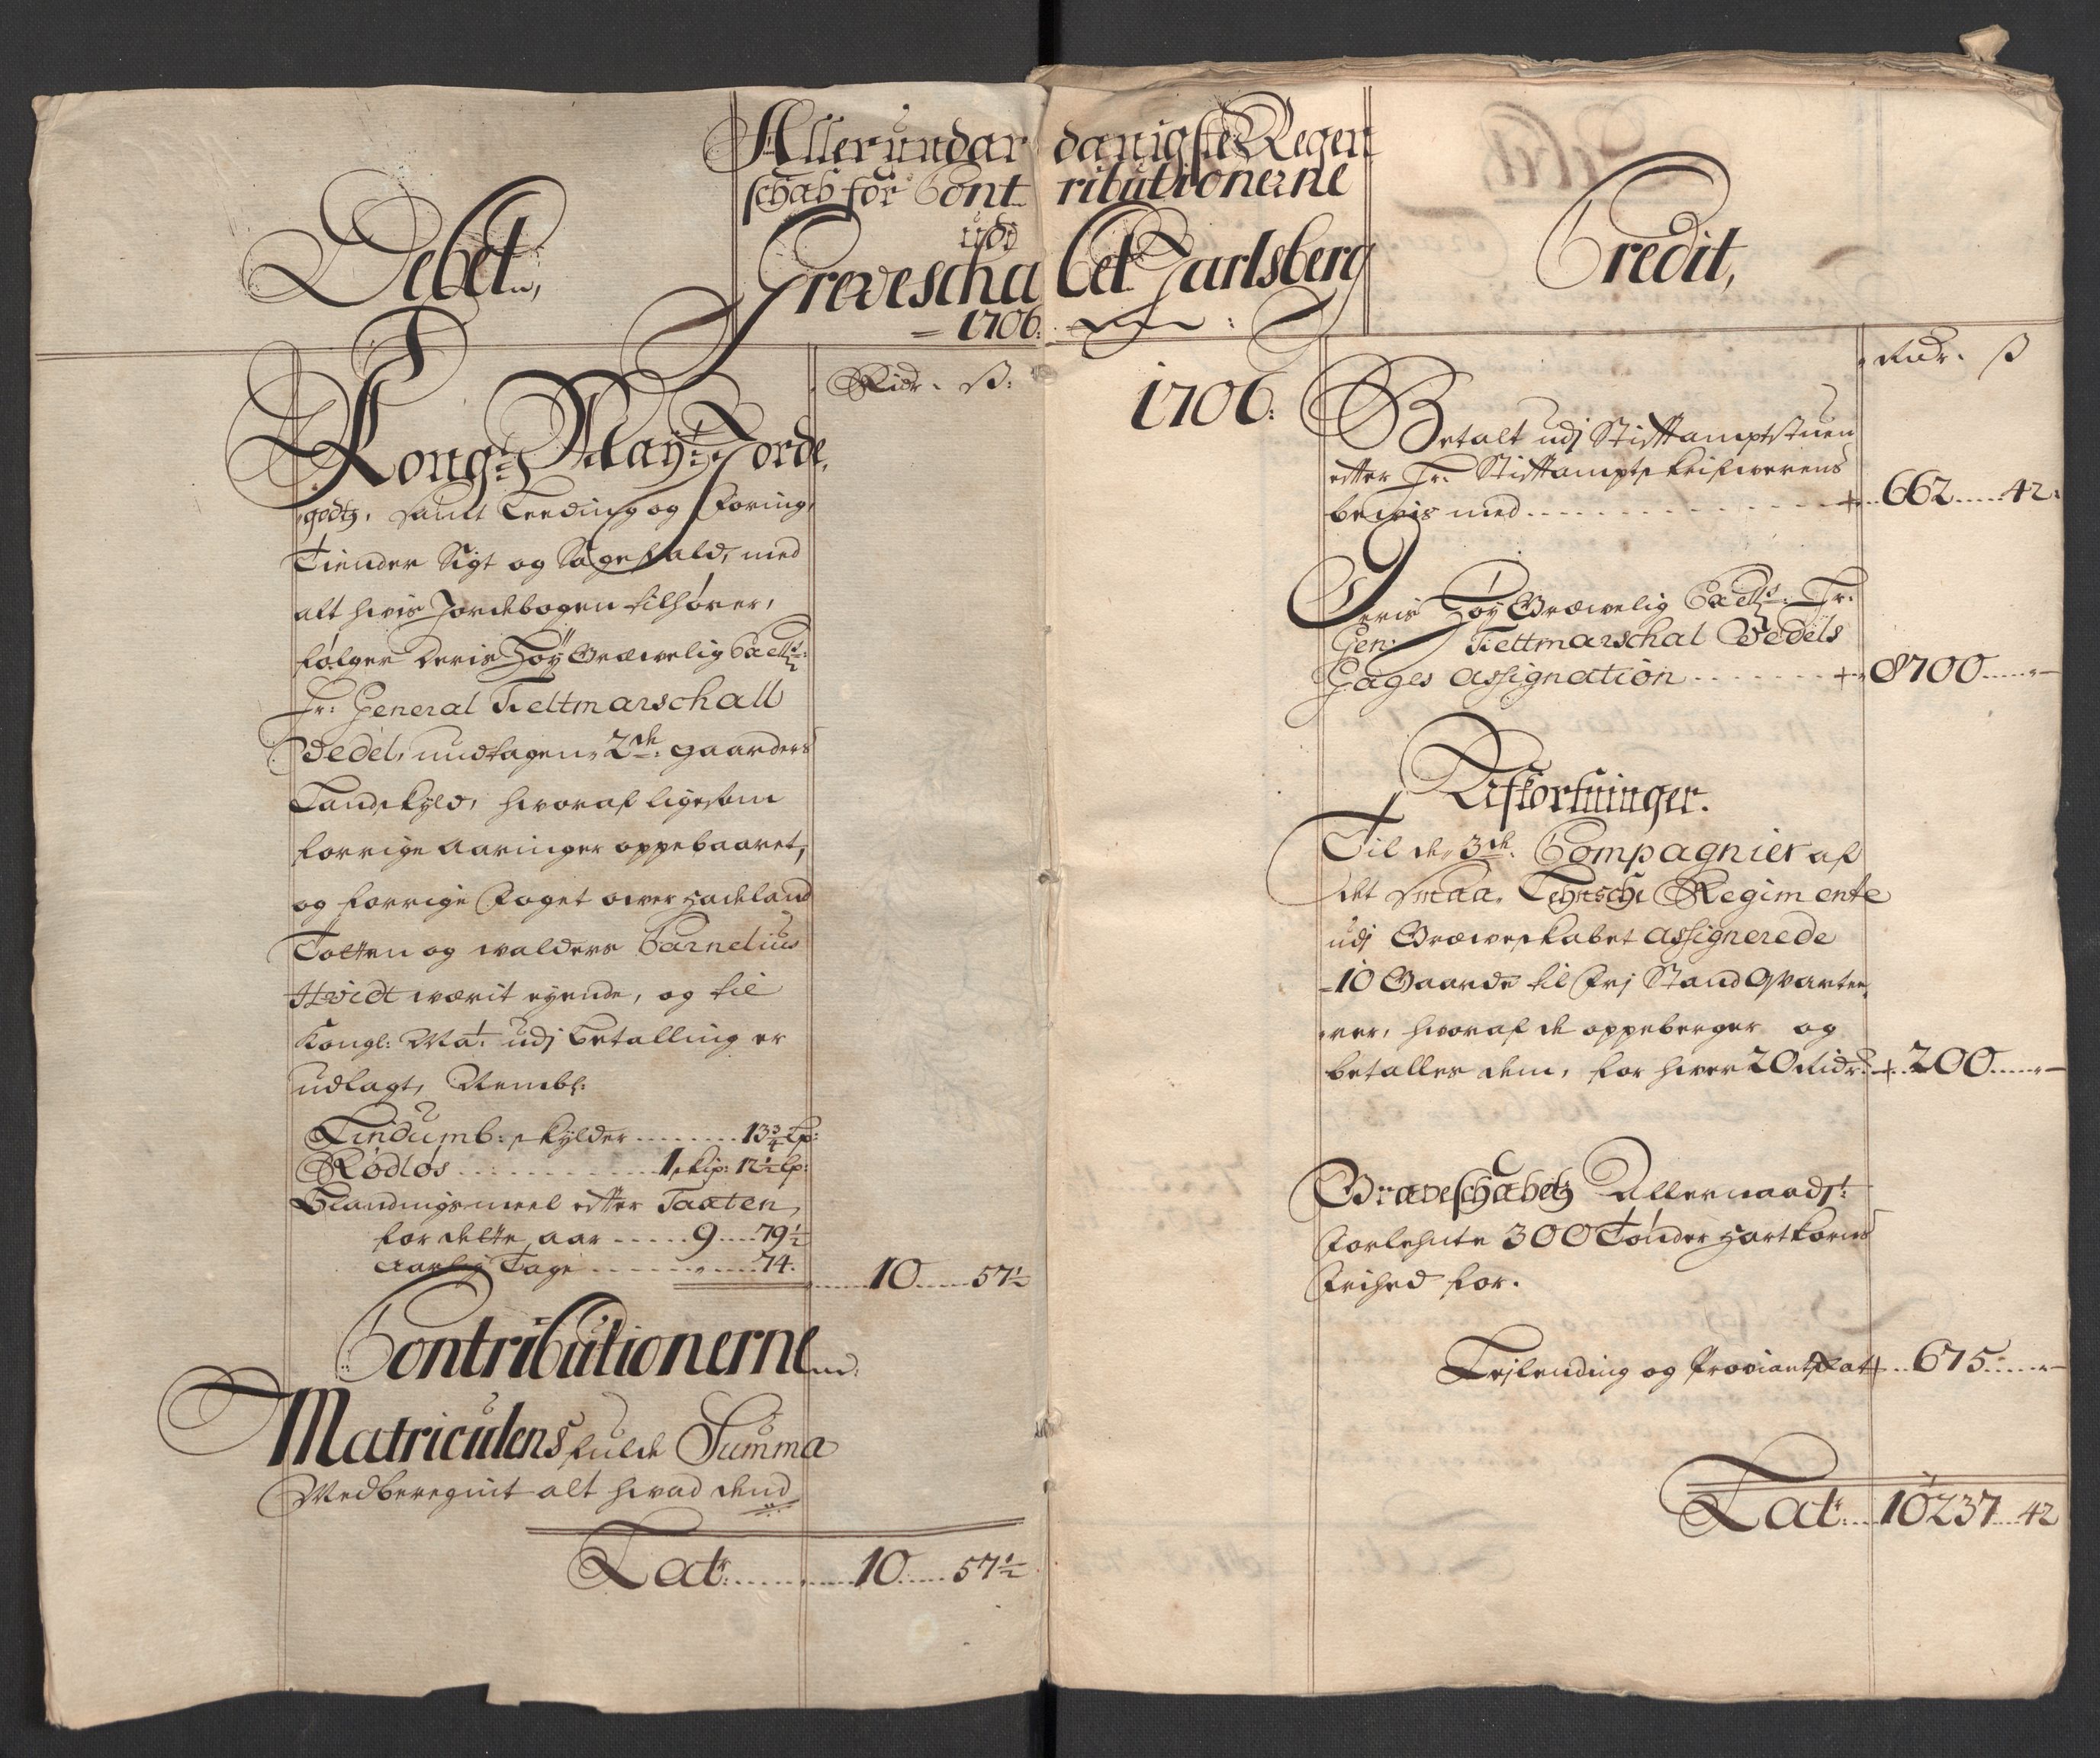 Allerundardanigste Regen
schab for Contributionerne
udi
Greveschabet Jarlsberg
1706:
Debet,
Ridr. ß:
Kong: May:t Jorde,
godtz, samt Leeding og Foring,
Tiender Sigt og Sagefald, med
alt hvis Jordebogen tilhører,
følger Deris Høy Grævelig Excells:
Hr: General Feltmarschall
Vedel, undtagen 2de gaarders
Landskyld, hvoraf ligesom
forrige Aaringer oppebaaret,
og forrige Foget over Hadeland
Totten og Walders Carnelius
Hvidt værit eyende, og til
Kongl: Ma:t udj betalling er
udlagt, Nembl:
Lindumb: skylder ........ 13¾ Lp:
Rødløs ............ 1 skip: 12½ lp:
Blandingsmeel efter Taxten
for dette aar ..... 9 .... 79½
Aarlig Tage ........ 74.
10 .... 57½
Contributionerne
Matriculens fulde Summa
Medberegnit alt hvad dend
Lat:r ........ 10 .... 57½
Credit,
Ridr. ß
1706:
Betalt udj Stiftamptstuen
efter Hr. Stiftamptskrifverens
beviis med ........ 662 .... 42:
Deris Høy Grævelig Excells: Hr.
Gen: Feltmarschal Vedels
Gages Assignation ...... 8700 .... -
Afkortninger.
Til de 3de Compagnier af
det Smaa. Lehnsche Regimente
udj Græveskabet Assignerede
10 Gaarde til Frj Stand Qvarteer,
rer, hvoraf de oppeberger og
betalles dem, for hver 20 Ridr: 200 .... -
Græveschabetz Allernaadst:
Forlehnte 300 Tønder Hartkorns
Frihed for.
Lejlending og Proviantskat .. 675 .... -
Lat:r .... 10237 .... 42